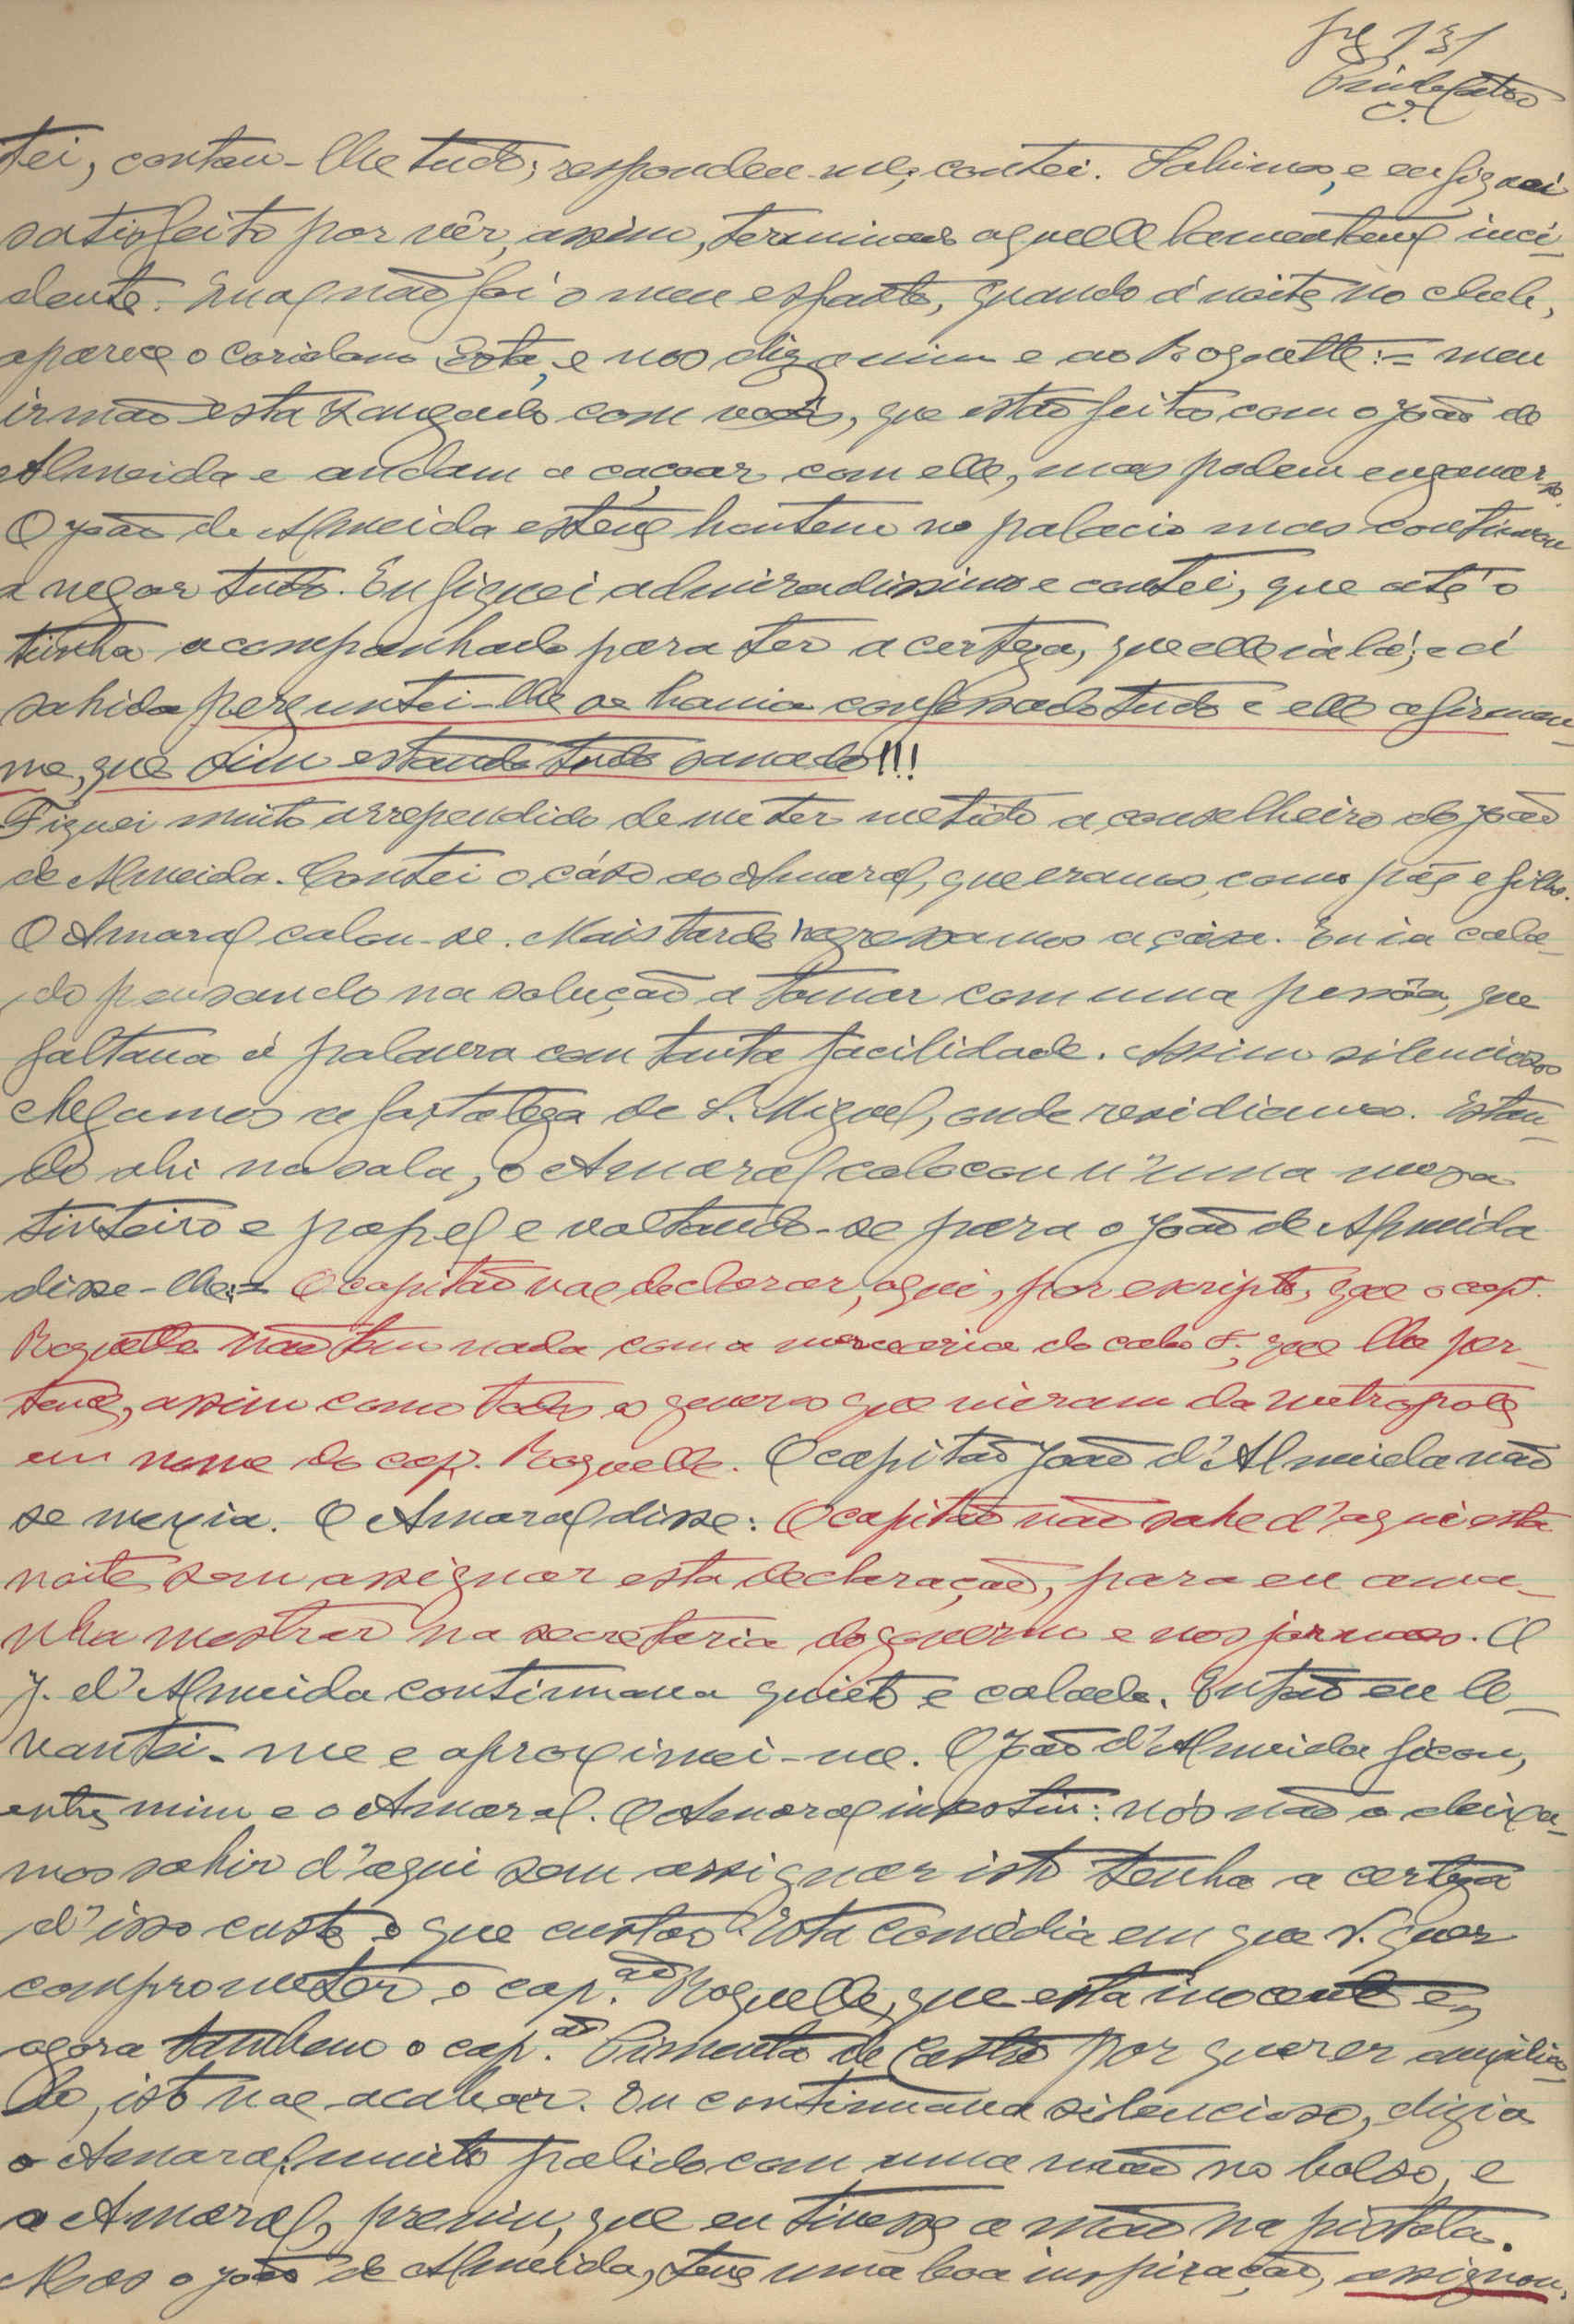 fg 131
tei, contou-lhe tudo; respondeu-me; contei. Sahimos, e eu fiquei
satisfeito por vêr, assim, terminado aquelle lamentavel inci-
dente. Qual não foi o meu espanto, quando á noite no club,
aparece o Coriolano Costa, e nos diz a mim e ao Roquette:= meu
irmão está zangado com vocês, que estão feitos com o João de
Almeida e andam a caçoar com elle, mas podem enganar-se.
O João de Almeida esteve hontem no palacio mas continuou
a negar tudo. Eu fiquei admiradissimo e contei, que até o
tinha acompanhado para ter a certeza, que elle ia lá; e á
sahida perguntei-lhe se havia confessado tudo e elle afirmou-
me, que sim estando tudo sanado!!!
Fiquei muito arrependido de me ter metido a conselheiro do João
de Almeida. Contei o cáso ao Amaral, que eramos, como páe e filho.
O Amaral calou-se. Mais tarde regressamos a cása. Eu ia cala-
do pensando na solução a tomar com uma pessôa, que
faltava á palavra com tanta facilidade. Assim silenciosos
chegamos a fortaleza de S. Miguel, onde residiamos. Estan-
do ahi na sala, o Amaral colocou n'uma mesa
tinteiro e papel e voltando-se para o João de Almeida
disse-lhe:= O capitão vae declarar, aqui, por escripto, que o cap.
Roquette não tem nada com a mercearia do cabo F., que lhe per-
tence, assim como todos os generos que vieram da metropole
em nome do cap. Roquette. O capitão João d'Almeida não
se mexia. O Amaral disse: O capitão não sahe d'aqui esta
noite sem assignar esta declaração, para eu ama-
nhã mostrar na secretaria do governo e nos jornaes. O
J. d'Almeida continuava quieto e calado. Então eu le-
vantei-me e aproximei-me. O João d'Almeida ficou,
entre mim e o Amaral. O Amaral insistiu: nós não o deixa-
mos sahir d'aqui sem assignar isto tenha a certeza
d'isso custe o que custar. Esta comédia em que V. quer
comprometer o cap.ão Roquette, que está inocente e,
agora tambem o cap.ão Pimenta de Castro por querer auxilia-
lo, isto vae acabar. Eu continuava silencioso, dizia
o Amaral, muito palido com uma mão no bolso, e
o Amaral, previu, que eu tivesse a mão na pistola.
Mas o João de Almeida, teve uma boa inspiração, assignou,